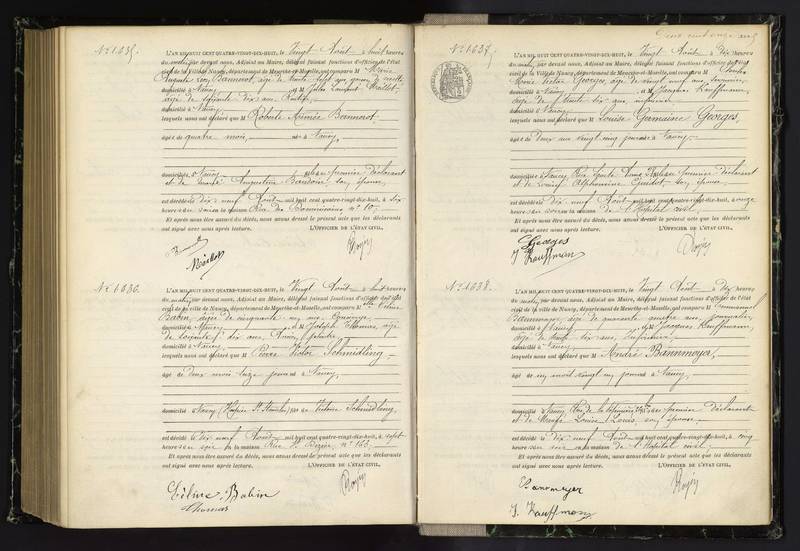 N° 1.635.
L'AN MIL HUIT CENT QUATRE-VINGT-DIX-HUIT, le Vingt Août à huit heures
du matin, par devant nous, Adjoint au Maire, délégué faisant fonctions d'officier de l'état
civil de la Ville de Nancy, département de Meurthe-et-Moselle, ont comparu M Marie
Auguste Léon Bannerot, âgé de trente sept ans,
domicilié à Nancy et M Jules Laurent Maillot,
âgé de soixante dix ans, Rentier,
domicilié à Nancy
lesquels nous ont déclaré que M Robert Aimée Bannerot
âgé de quatre mois, né à Nancy,
domicilié à Nancy premier déclarant
et de Marie Augustine Baudoin son épouse,
est décédé le dix neuf Août mil huit cent quatre-vingt-dix-huit, à six
heures du soir en la maison Rue des Dominicains n° 10.
Et après nous être assuré du décès, nous avons dressé le présent acte que les déclarants
ont signé avec nous après lecture. L'OFFICIER DE L'ÉTAT CIVIL,
Maillot
N° 1.636.
L'AN MIL HUIT CENT QUATRE-VINGT-DIX-HUIT, le Vingt Août à huit heures
du matin, par devant nous, Adjoint au Maire, délégué faisant fonctions d'officier de l'état
civil de la ville de Nancy, département de Meurthe-et-Moselle, ont comparu M elle Céline
Babin, âgée de cinquante un ans,
domiciliée à Nancy et M Joseph Thomas, âgé
de soixante dix ans,
domicilié à Nancy
lesquels nous ont déclaré que M Pierre Victor Schmidling
âgé de Deux mois onze jours né à Nancy,
domicilié à Nancy (Hospice St Stanislas) fils de Victoire Schmidling,
est décédé le dix neuf Août mil huit cent quatre-vingt-dix-huit, à sept
heures du soir en la maison Rue St Dizier, n° 163
Et après nous être assuré du décès, nous avons dressé le présent acte que les déclarants
ont signé avec nous après lecture. L'OFFICIER DE L'ÉTAT CIVIL,
Céline Babin
Thomas
Deux cent onze
N° 1.637.
L'AN MIL HUIT CENT QUATRE-VINGT-DIX-HUIT, le Vingt Août à dix heures
du matin, par devant nous, Adjoint au Maire, délégué faisant fonctions d'officier de l'état
civil de la Ville de Nancy, département de Meurthe-et-Moselle, ont comparu M
Marie Victor Georges, âgé de vingt neuf ans,
domicilié à Nancy et M Jacques Kauffmann,
âgé de trente dix ans, infirmier,
domicilié à Nancy
lesquels nous ont déclaré que M Louise Germaine Georges,
âgée de Deux ans vingt cinq jours née à Nancy
domiciliée à Nancy, Rue premier déclarant
et de Louise Alphonsine Guidot son épouse,
est décédée le dix neuf Août mil huit cent quatre-vingt-dix-huit, à onze
heures du soir en la maison de l'Hôpital civil,
Et après nous être assuré du décès, nous avons dressé le présent acte que les déclarants
ont signé avec nous après lecture. L'OFFICIER DE L'ÉTAT CIVIL,
Georges
J Kauffmann
N° 1.638.
L'AN MIL HUIT CENT QUATRE-VINGT-DIX-HUIT, le Vingt Août à dix heures
du matin, par devant nous, Adjoint au Maire, délégué faisant fonctions d'officier de l'état
civil de la ville de Nancy, département de Meurthe-et-Moselle, ont comparu M Emmanuel
Bannmeyer, âgé de quarante ans, journalier,
domicilié à Nancy et M Jacques Kauffmann,
âgé de trente dix ans, infirmier,
domicilié à Nancy
lesquels nous ont déclaré que M André Bannmeyer,
âgé de un mois vingt un jours né à Nancy,
domicilié à Nancy, Rue de la Pépinière premier déclarant
et de Marie Louise Louis, son épouse
est décédé le dix neuf Août mil huit cent quatre-vingt-dix-huit, à cinq
heures du soir en la maison de l'Hôpital civil,
Et après nous être assuré du décès, nous avons dressé le présent acte que les déclarants
ont signé avec nous après lecture. L'OFFICIER DE L'ÉTAT CIVIL,
Bannmeyer
J. Kauffmann